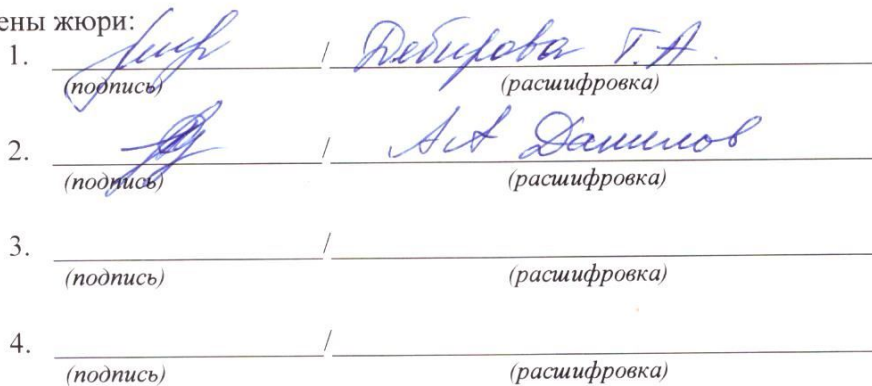 ены жюри:
1. / Дебирова Т.А.
(подпись) (расшифровка)
2. / АА Данилов
(подпись) (расшифровка)
3. /
(подпись) (расшифровка)
4. /
(подпись) (расшифровка)